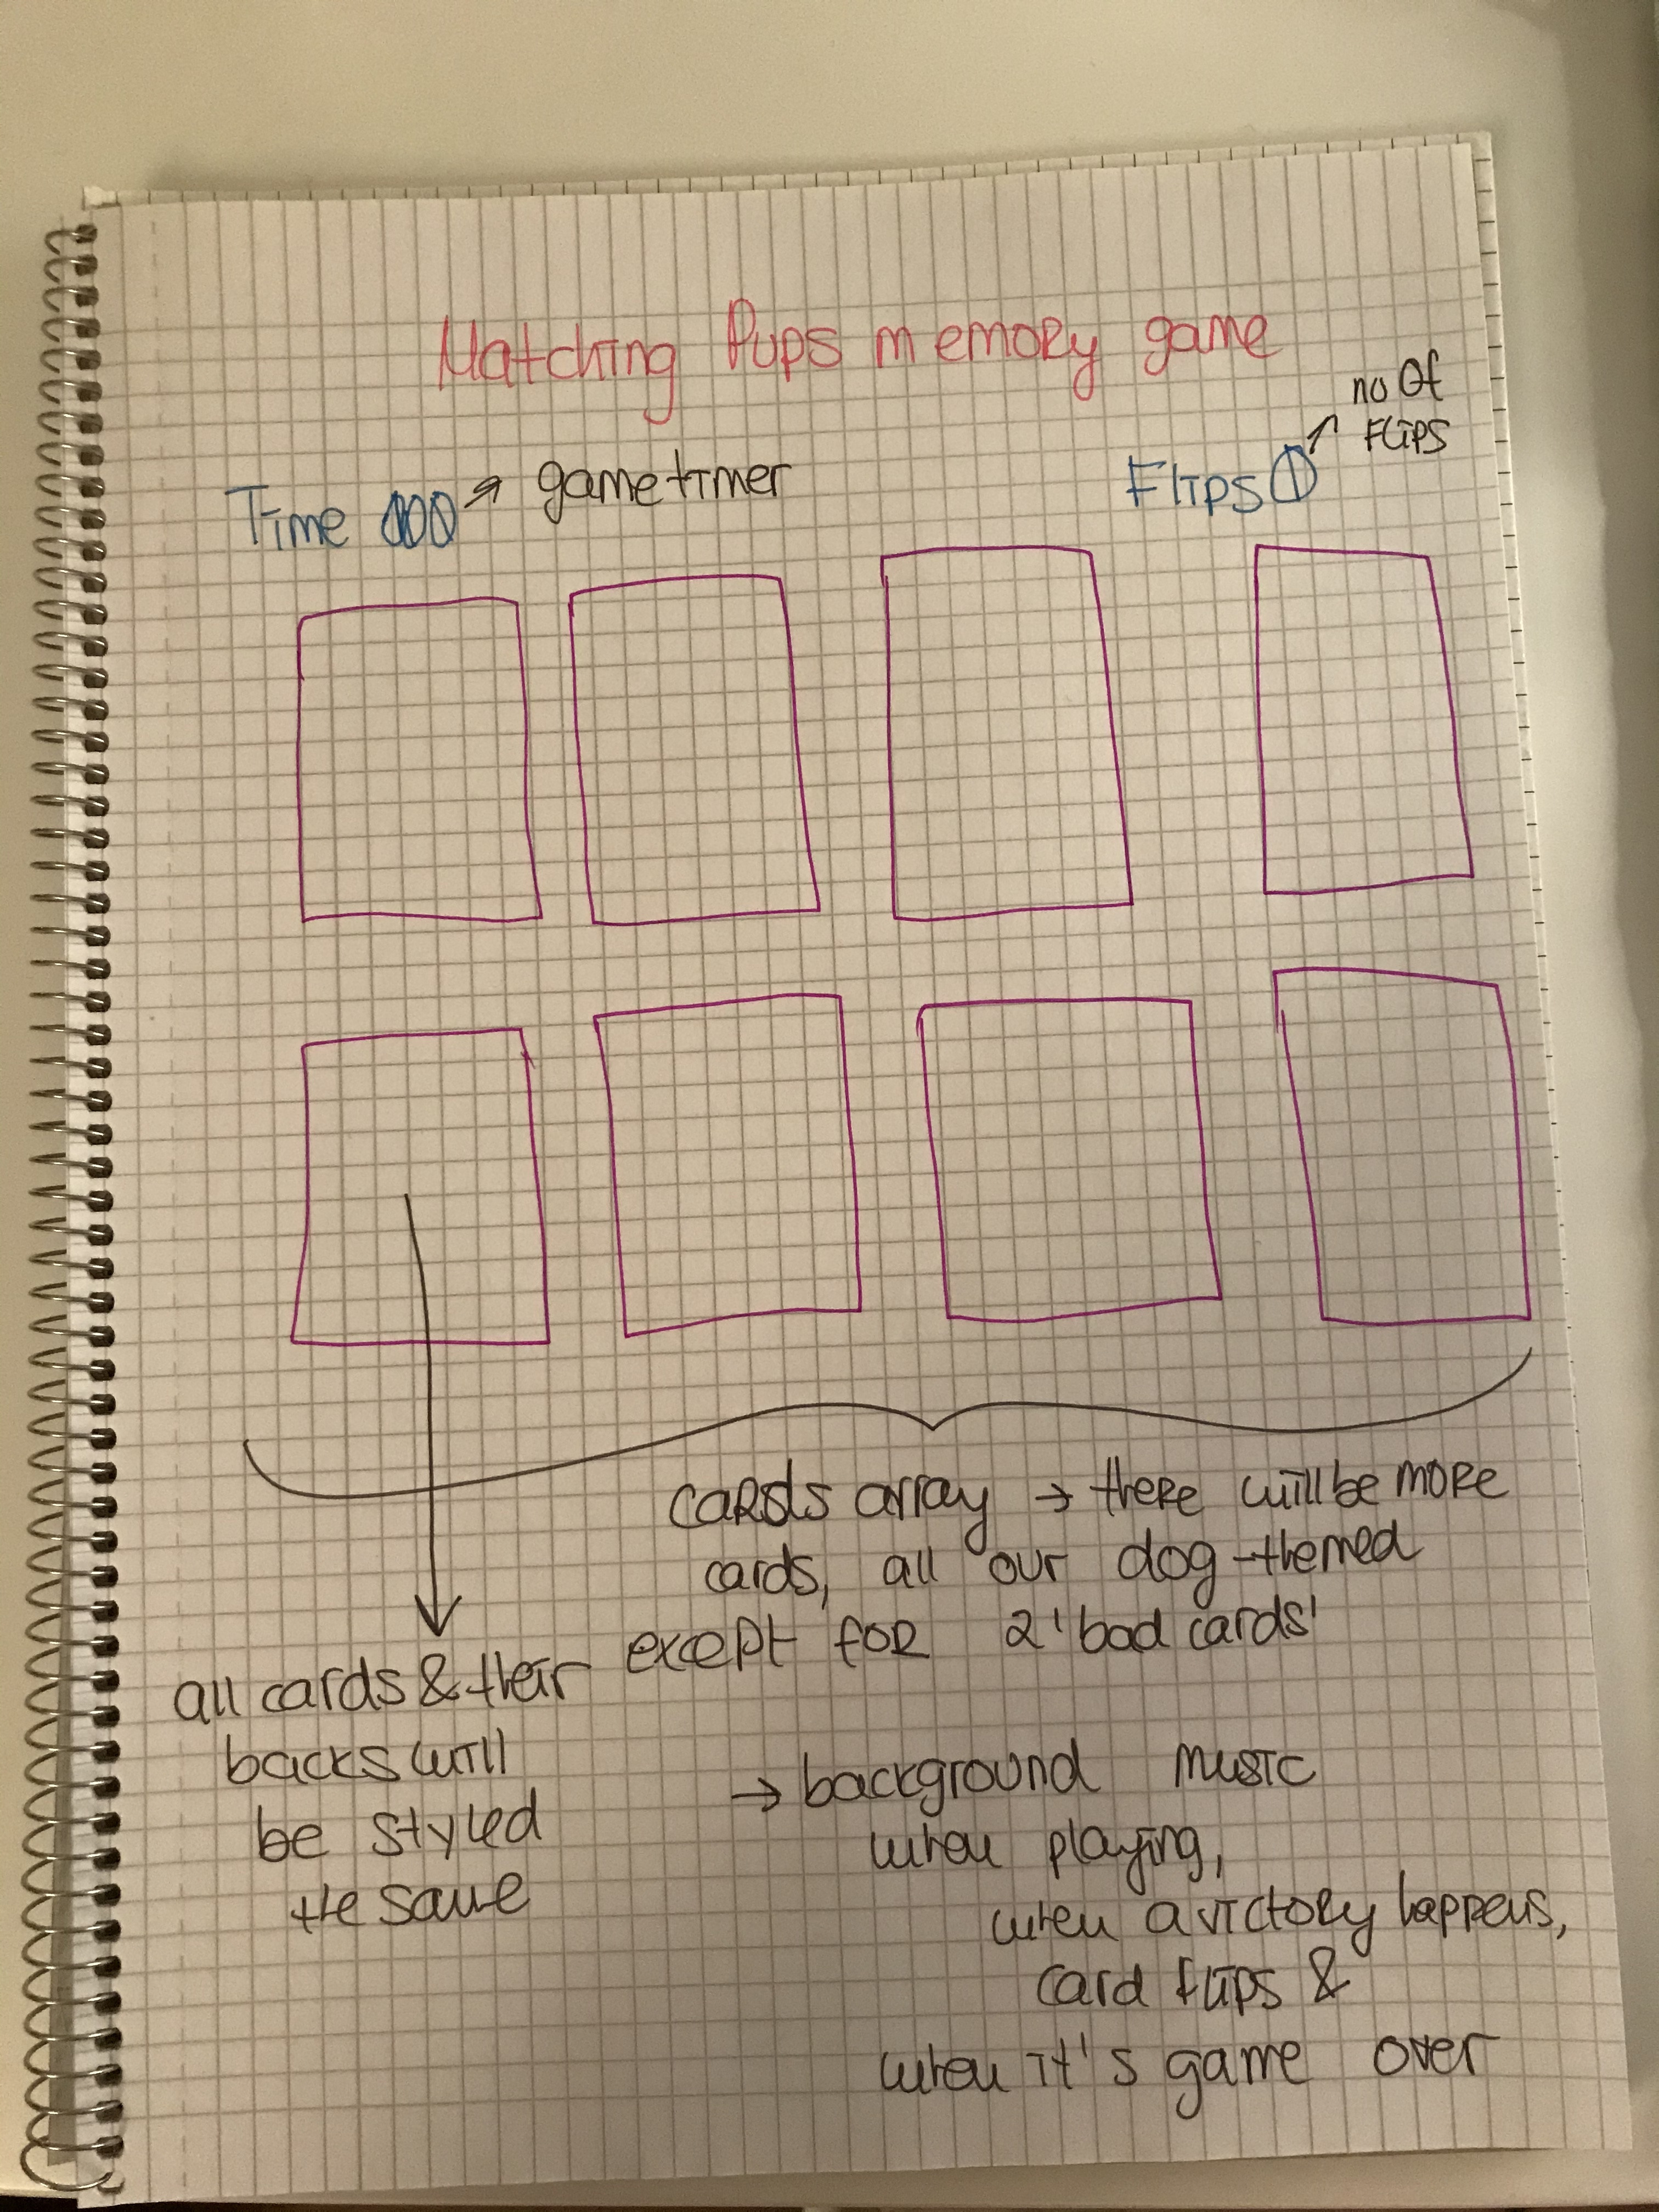 Matching Pups memory game
no Of
Flips
Time 000 → gametimer
Flips 0
cards array → there will be more
cards, all our dog-themed
except for 2 'bad cards'
all cards & their
backs will
be styled
the same
→ background music
when playing,
when a victory happens,
card flips &
when it's game over